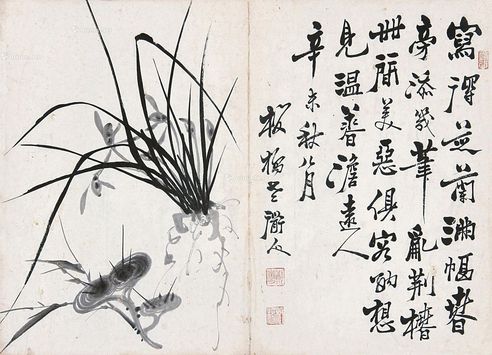 寫得芝蘭滿幅春
旁添幾筆亂荊榛
世間美惡俱容納想
見溫馨澹遠人
辛未秋八月
板橋老人